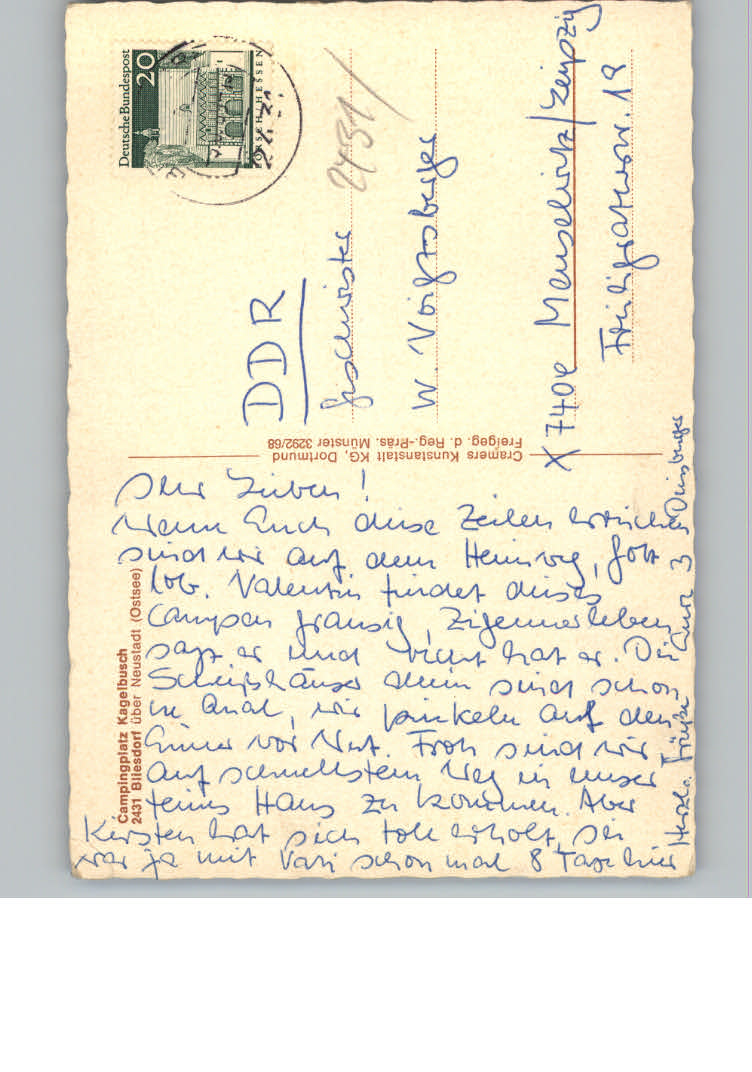 Campingplatz Kagelbusch
2431 Bliesdorf über Neustadt (Ostsee)
Ihr Lieben!
Wenn Euch diese Zeilen erreichen
sind wir auf dem Heimweg, Gott
lob. Valentin findet dieses
Campen grausig, Zigeunerleben
sagt er und recht hat er. Die
Scheißhäuser allein sind schon
ne Qual, wir pinkeln auf den
Eimer vor Not. Froh sind wir
auf schnellstem Weg in unser
feines Haus zu kommen. Aber
Kirsten hat sich toll erholt, sie
war ja mit Vati schon mal 8 Tage hier
Herzl. Grüße Eure 3 Duisburger
Cramers Kunstanstalt KG, Dortmund
Freigeg. d. Reg.-Präs. Münster 3292/68
Deutsche Bundespost
20
LORSCH/HESSEN
DDR
Geschwister
2431
W. Voigtsberger
X 7404 Meuselwitz/Leipzig
Freiligrathstr. 19